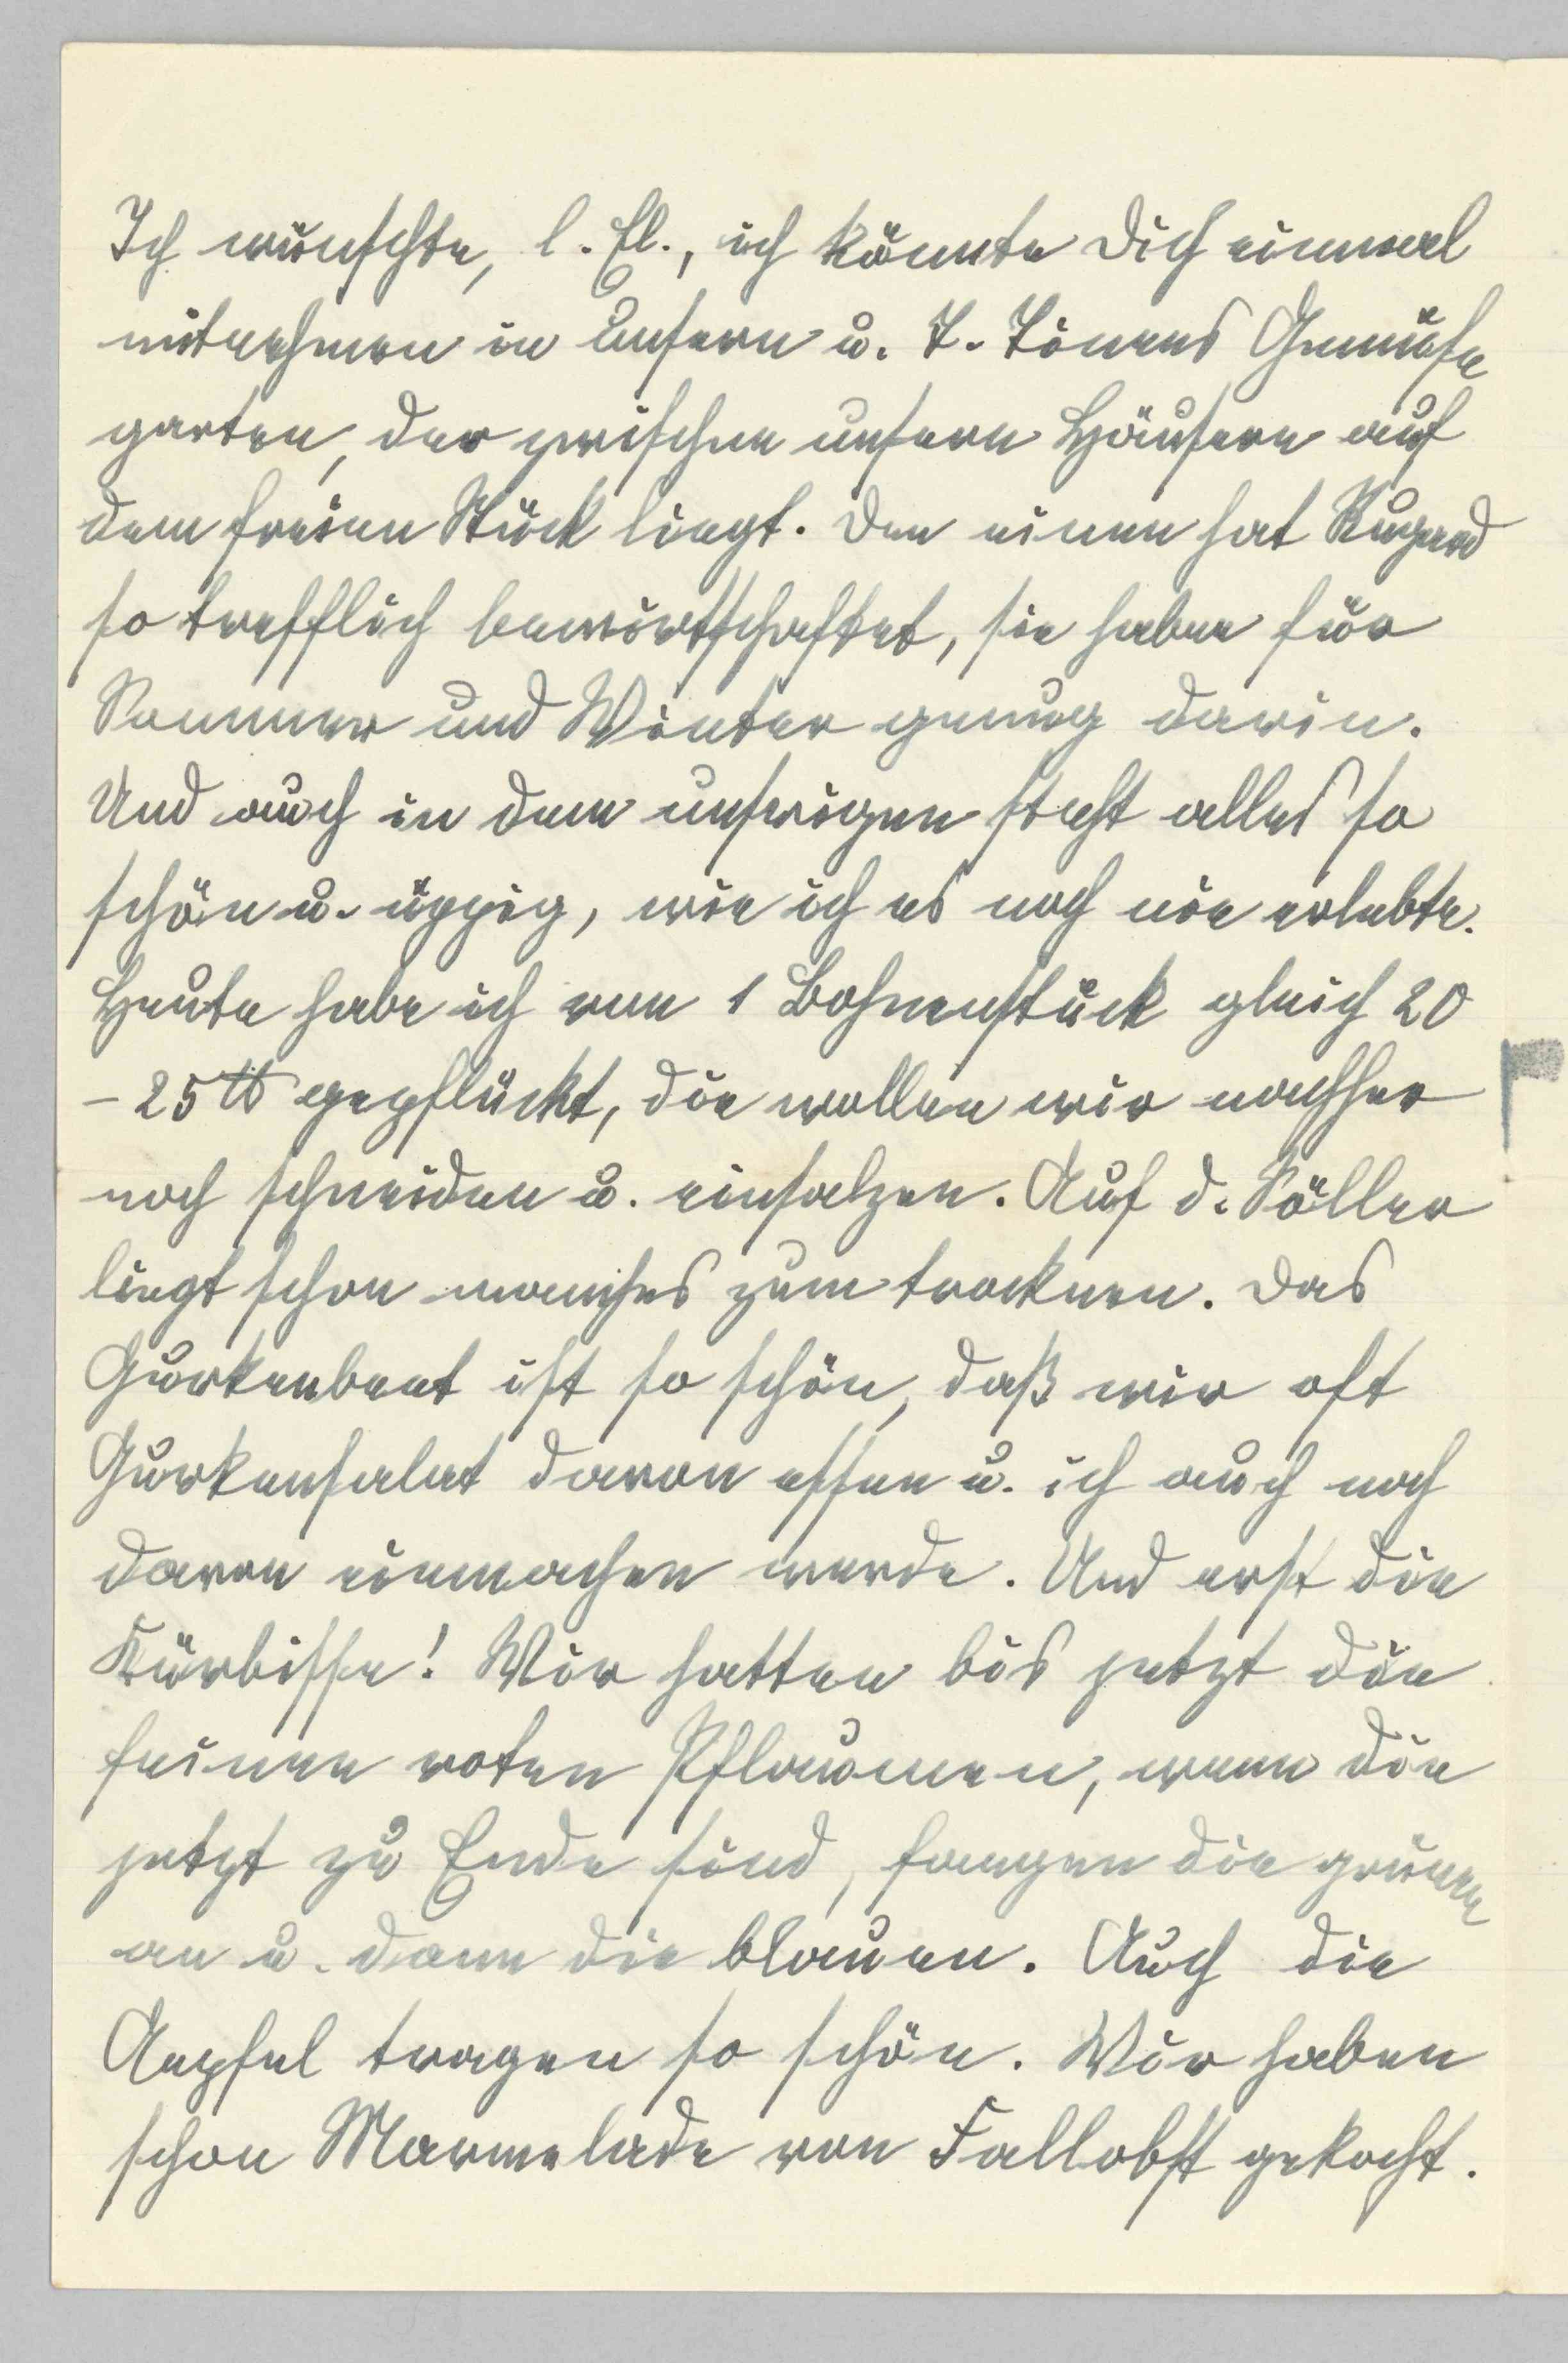 Ich wünschte, l. El., ich könnte Dich einmal
mitnehmen in unsern u. T. Linens Gemüse
garten, der zwischen unsern Häusern auf
dem freien Stück liegt. Den einen hat
so trefflich bewirtschaftet, sie haben für
Sommer und Winter genug darin.
Und auch in dem unsrigen steht alles so
schön u. üppig, wie ich es noch nie erlebte.
Heute habe ich von 1 Bohnenstück gleich 20
– 25 ℔ gepflückt, die wollen wir nachher
noch schneiden u. einsalzen. Auf d. Söller
liegt schon manches zum trocknen. Das
Gurkenbeet ist so schön, daß wir oft
Gurkensalat davon essen u. ich auch noch
davon einmachen werde. Und erst die
Kürbisse! Wir hatten bis jetzt die
feinen roten Pflaumen, wenn die
jetzt zu Ende sind, fangen die grünen
an u. dann die blauen. Auch die
Aepfel tragen so schön. Wir haben
schon Marmelade von Fallobst gekocht.